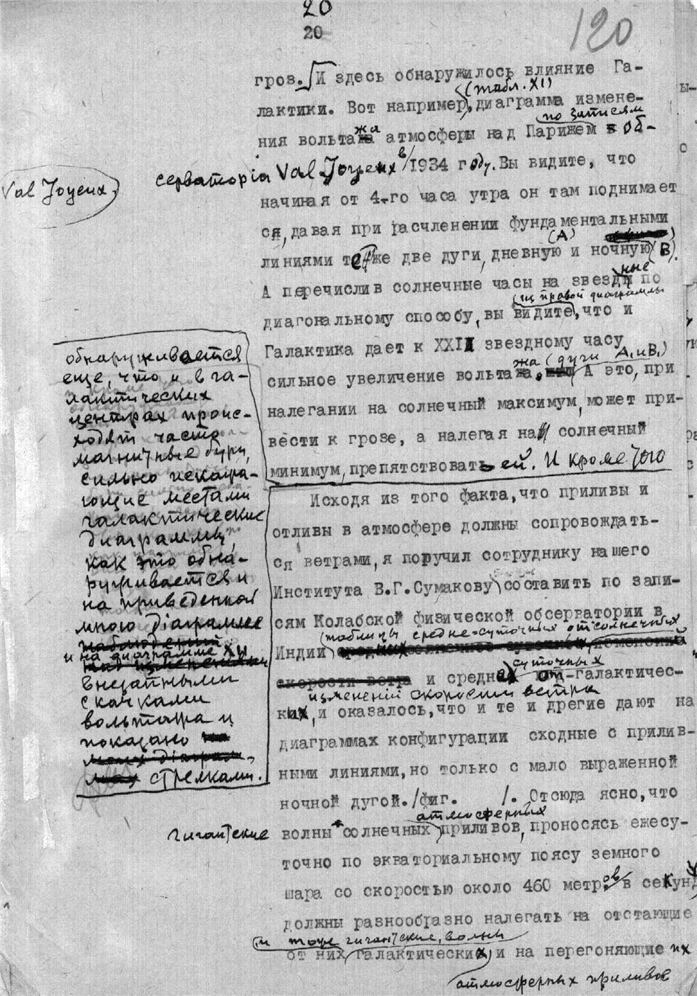 20
20
120
гроз. И здесь обнаружилось влияние Га-
(табл. XI)
лактики. Вот например, диаграмма измене-
по записям
ния вольтажа атмосферы над Парижем об-
серваторiи Val Joyeux в /1934 году. Вы видите, что
Val Joyeux
начиная от 4-го часа утра он там поднимает
ся, давая при расчленении фундаментальными
линиями те же две дуги, дневную (А) и ночную (В).
А перечислив солнечные часы на звездные по
(из правой диаграммы)
диагональному способу, вы видите, что и
Галактика дает к XXII звездному часу
сильное увеличение вольтажа (дуги А1 и В1). А это, при
налегании на солнечный максимум, может при-
вести к грозе, а налегая на солнечный
минимум, препятствовать ей. И кроме того
обнаруживается
еще, что и в га-
лактических
центрах проис-
ходят часто
магнитные бури,
сильно искажа-
ющие местами
галактические
диаграммы,
как это обна-
руживается и
на приведенной
мною дiаграмме
и на диаграмме XI
внезапными
скачками
вольтажа и
показано
стрелками.
Исходя из того факта, что приливы и
отливы в атмосфере должны сопровождать-
ся ветрами, я поручил сотруднику нашего
Института В.Г.Сумакову составить по запи-
сям Колабской физической обсерватории в
(таблицы средне-суточных отсолнечных
Индии и средне суточных от-галактичес-
изменений скорости ветра
ких, и оказалось, что и те и дрегие дают на
диаграммах конфигурации сходные с прилив-
ными линиями, но только с мало выраженной
ночной дугой. /фиг. /. Отсюда ясно, что
атмосферных
гигантские волны солнечных приливов, проносясь ежесу-
точно по экваториальному поясу земного
шара со скоростью около 460 метров в секунду
должны разнообразно налегать на отстающие
и тоже гигантские, волны
от них галактических, и на перегоняющие их
атмосферных приливов